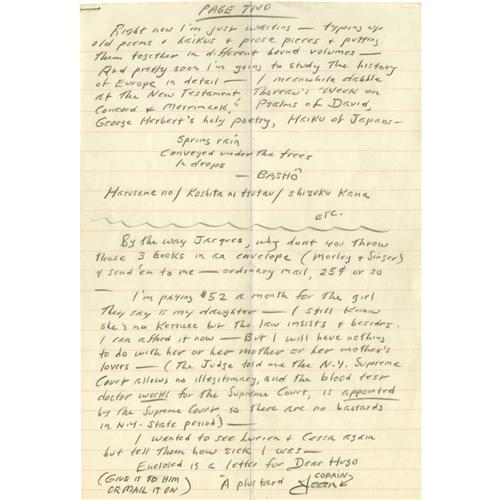 PAGE TWO
Right now I'm just waiting — typing up
old poems & haikus & prose pieces & putting
them together in different bound volumes —
And pretty soon I'm going to study the history
of Europe in detail — I meanwhile dabble
at the New Testament, Thoreau's "Week on
Concord & Merrimack," Psalms of David,
George Herbert's holy poetry, Haiku of Japans —
Spring rain
Conveyed under the trees
In drops
— BASHŌ
Harusame no / Koshita ni tsutau / shizuku kana
ETC.
By the way Jacques, why dont you throw
those 3 books in an envelope (Morley & Singer)
& send 'em to me — ordinary mail, 25¢ or so
—
I'm paying $52 a month for the girl
they say is my daughter — I still know
she's no Kerouac but the law insists & besides.
I can afford it now — But I will have nothing
to do with her or her mother or her mother's
lovers — (The Judge told me the N.Y. Supreme
Court allows no illegitimacy, and the blood test
doctor works for the Supreme Court, is appointed
by the Supreme Court, so there are no bastards
in N.Y. State period) —
I wanted to see Lucien & Cessa again
but tell them how sick I was —
Enclosed is a letter for Dear Hugo
(GIVE IT TO HIM OR MAIL IT ON)
"A plustard
COPAIN
Jean